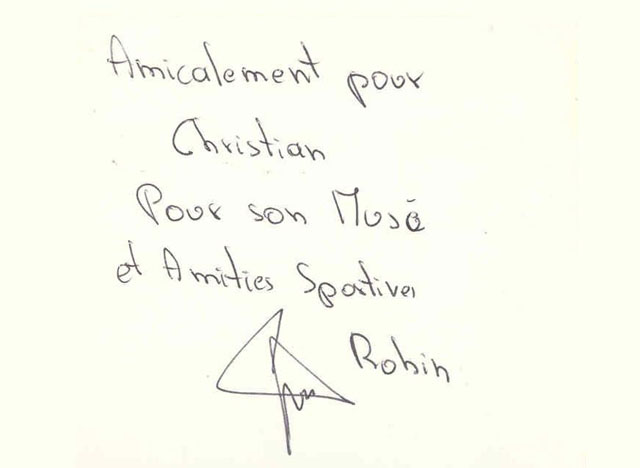 Amicalement pour
Christian
Pour son Musé
et Amities Sportives
Robin